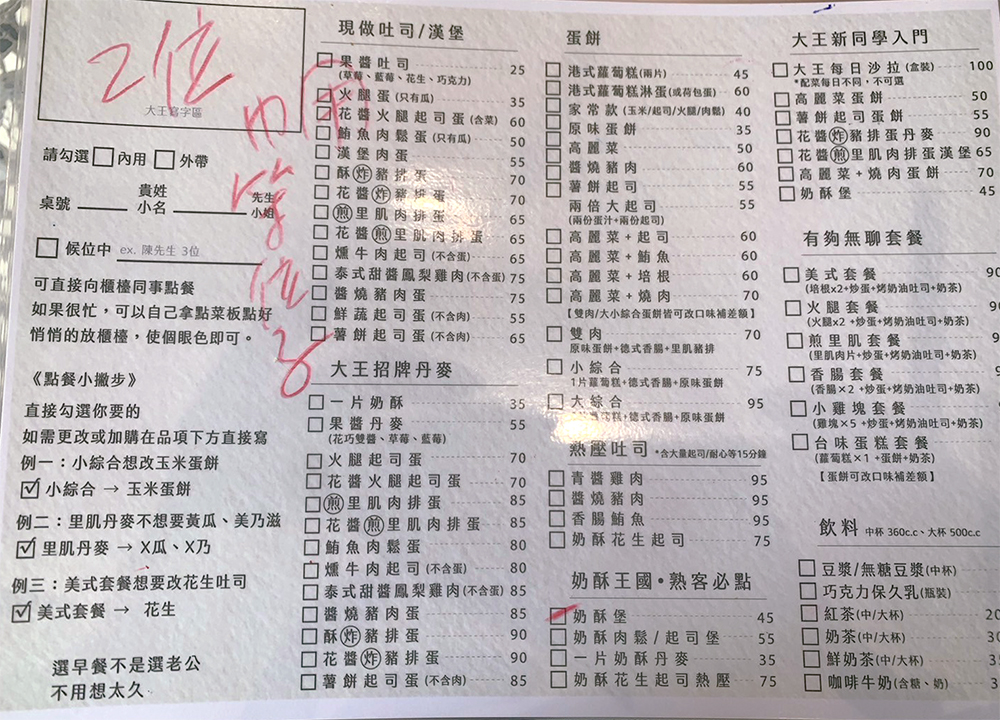 2位
大王寫字區
內用
等位子
請勾選 內用 外帶
桌號 貴姓小名 先生小姐
候位中 ex. 陳先生 3位
可直接向櫃檯同事點餐
如果很忙，可以自己拿點菜板點好
悄悄的放櫃檯，使個眼色即可。
《點餐小撇步》
直接勾選你要的
如需更改或加購在品項下方直接寫
例一：小綜合想改玉米蛋餅
小綜合 → 玉米蛋餅
例二：里肌丹麥不想要黃瓜、美乃滋
里肌丹麥 → X瓜、X乃
例三：美式套餐想要改花生吐司
美式套餐 → 花生
選早餐不是選老公
不用想太久
現做吐司/漢堡
果醬吐司 25
(草莓、藍莓、花生、巧克力)
火腿蛋(只有瓜) 35
花醬火腿起司蛋(含菜) 60
鮪魚肉鬆蛋(只有瓜) 50
漢堡肉蛋 55
酥炸豬排蛋 70
花醬炸豬排蛋 70
煎里肌肉排蛋 65
花醬煎里肌肉排蛋 65
燻牛肉起司(不含蛋) 65
泰式甜醬鳳梨雞肉(不含蛋) 75
醬燒豬肉蛋 75
鮮蔬起司蛋(不含肉) 55
薯餅起司蛋(不含肉) 65
大王招牌丹麥
一片奶酥 35
果醬丹麥 55
(花巧雙醬、草莓、藍莓)
火腿起司蛋 70
花醬火腿起司蛋 70
煎里肌肉排蛋 85
花醬煎里肌肉排蛋 85
鮪魚肉鬆蛋 80
燻牛肉起司(不含蛋) 80
泰式甜醬鳳梨雞肉(不含蛋) 85
醬燒豬肉蛋 85
酥炸豬排蛋 90
花醬炸豬排蛋 90
薯餅起司蛋(不含肉) 85
蛋餅
港式蘿蔔糕(兩片) 45
港式蘿蔔糕淋蛋(或荷包蛋) 60
家常款(玉米/起司/火腿/肉鬆) 40
原味蛋餅 35
高麗菜 50
醬燒豬肉 60
薯餅起司 55
兩倍大起司 55
(兩份蛋汁+兩份起司)
高麗菜+起司 60
高麗菜+鮪魚 60
高麗菜+培根 60
高麗菜+燒肉 70
【雙肉/大小綜合蛋餅皆可改口味補差額】
雙肉 70
原味蛋餅+德式香腸+里肌豬排
小綜合 75
1片蘿蔔糕+德式香腸+原味蛋餅
大綜合 95
糕+德式香腸+原味蛋餅
熱壓吐司 *含大量起司/耐心等15分鐘
青醬雞肉 95
醬燒豬肉 95
香腸鮪魚 95
奶酥花生起司 75
奶酥王國•熟客必點
奶酥堡 45
奶酥肉鬆/起司堡 55
一片奶酥丹麥 35
奶酥花生起司熱壓 75
大王新同學入門
大王每日沙拉(盒裝) 100
*配菜每日不同，不可選
高麗菜蛋餅 50
薯餅起司蛋餅 55
花醬炸豬排蛋丹麥 90
花醬煎里肌肉排蛋漢堡 65
高麗菜+燒肉蛋餅 70
奶酥堡 45
有夠無聊套餐
美式套餐 90
(培根x2+炒蛋+烤奶油吐司+奶茶)
火腿套餐
(火腿x2 +炒蛋+烤奶油吐司+奶茶)
煎里肌套餐
(里肌肉片+炒蛋+烤奶油吐司+奶茶)
香腸套餐
(香腸×2 +炒蛋+烤奶油吐司+奶茶)
小雞塊套餐
(雞塊×5 +炒蛋+烤奶油吐司+奶茶)
台味蛋糕套餐
(蘿蔔糕×1 +蛋餅+奶茶)
【蛋餅可改口味補差額】
飲料 中杯 360c.c、大杯 500c.c
豆漿/無糖豆漿(中杯)
巧克力保久乳(瓶裝)
紅茶(中/大杯)
奶茶(中/大杯)
鮮奶茶(中/大杯)
咖啡牛奶(含糖、奶)